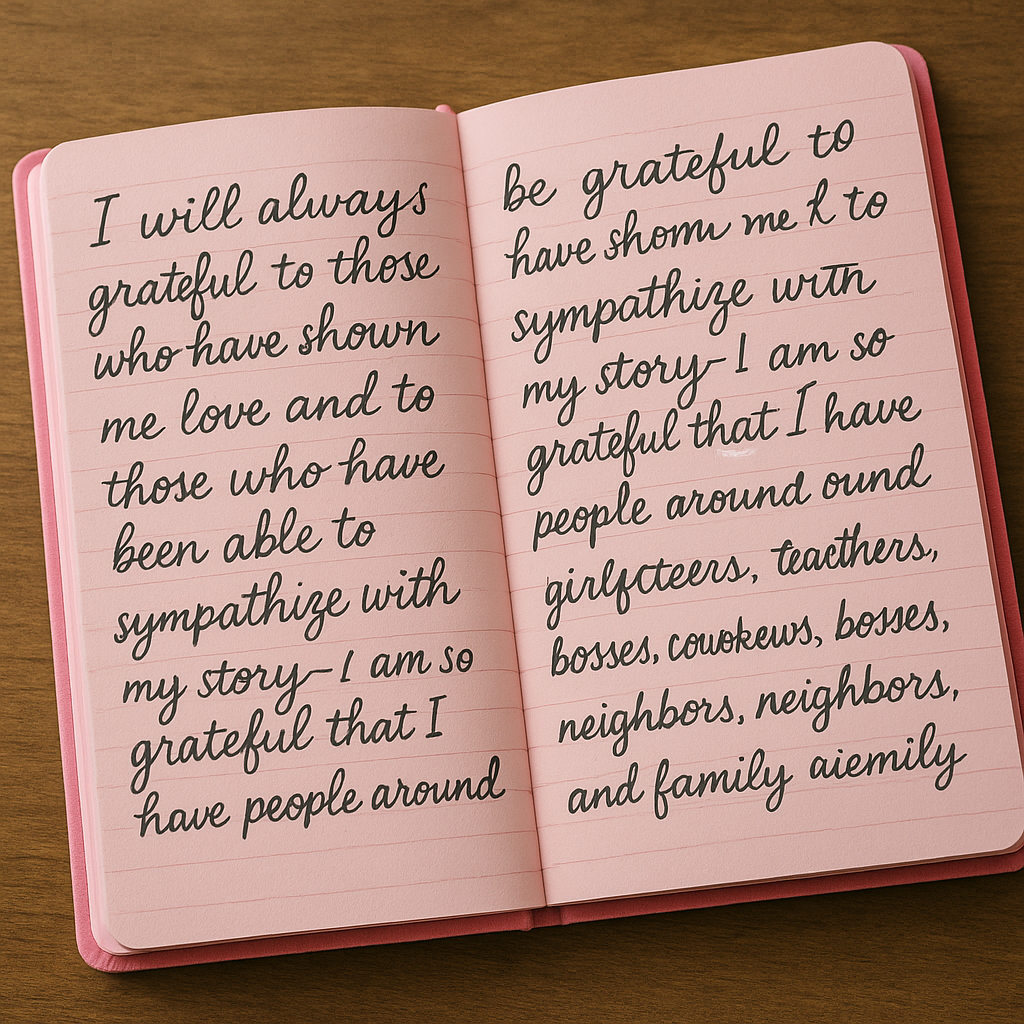 I will always
grateful to those
who have shown
me love and to
those who have
been able to
sympathize with
my story—I am so
grateful that I
have people around
be grateful to
have me to
sympathize with
my story—I am so
grateful that I have
people around ound
teacthers,
bosses, bosses,
neighbors, neighbors,
and family aiemily